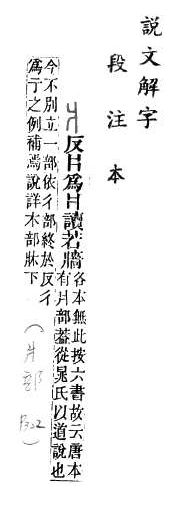 說文解字
段注本
爿
反片為爿讀若牆
各本無此按六書故云唐本
有爿部蓋從晁氏以道說也
今不別立一部依彳部終於反彳
為亍之例補焉說詳木部牀下
（片部 ）